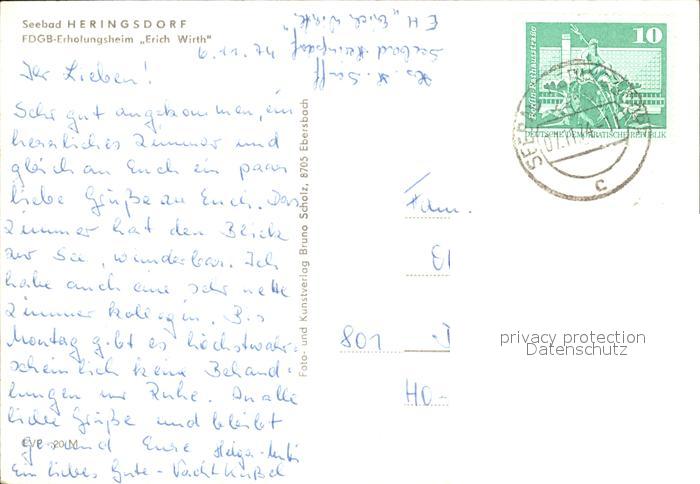 Seebad HERINGSDORF
FDGB-Erholungsheim „Erich Wirth"
6.11.74
Seebad Heringsdorf
EH „Erich Wirth"
Ihr Lieben!
Sehr gut angekommen, ein
herrliches Zimmer und
gleich an Euch ein paar
liebe Grüße zu Euch. Das
Zimmer hat den Blick
zur See, wunderbar. Ich
habe auch eine sehr nette
Zimmerkollegin. Bis
Montag gibt es höchstwahr-
scheinlich keine Behand-
lungen nur Ruhe. An alle
liebe Grüße und bleibt
gesund Eure Helga-
Ein liebes Gute-Nachtküßel
EVP -,20 M
Foto- und Kunstverlag Bruno Scholz, 8705 Ebersbach
10
Berlin, Rathausstraße
DEUTSCHE DEMOKRATISCHE REPUBLIK
SEEBAD
07.11.74
c
Fam.
El
801 J
HO-
privacy protection
Datenschutz